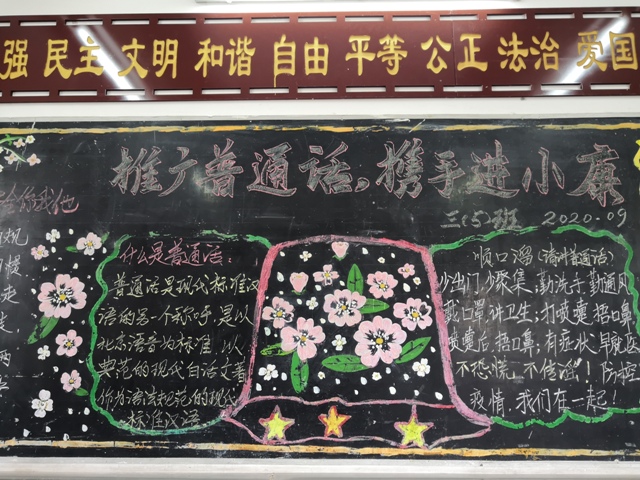 强 民主 文明 和谐 自由 平等 公正 法治 爱国
推广普通话，携手进小康
三(5)班 2020.09
给你我他
什么是普通话：
普通话是现代标准汉
语的另一个称呼，是以
北京语音为标准，以
典范的现代白话文著
作为语法规范的现代
标准汉语
顺口溜(请讲普通话)
少出门，少聚集，勤洗手勤通风
戴口罩讲卫生；打喷嚏捂口鼻
喷嚏后捂口鼻；有症状早就医
不恐慌，不信谣！防控
疫情，我们在一起！